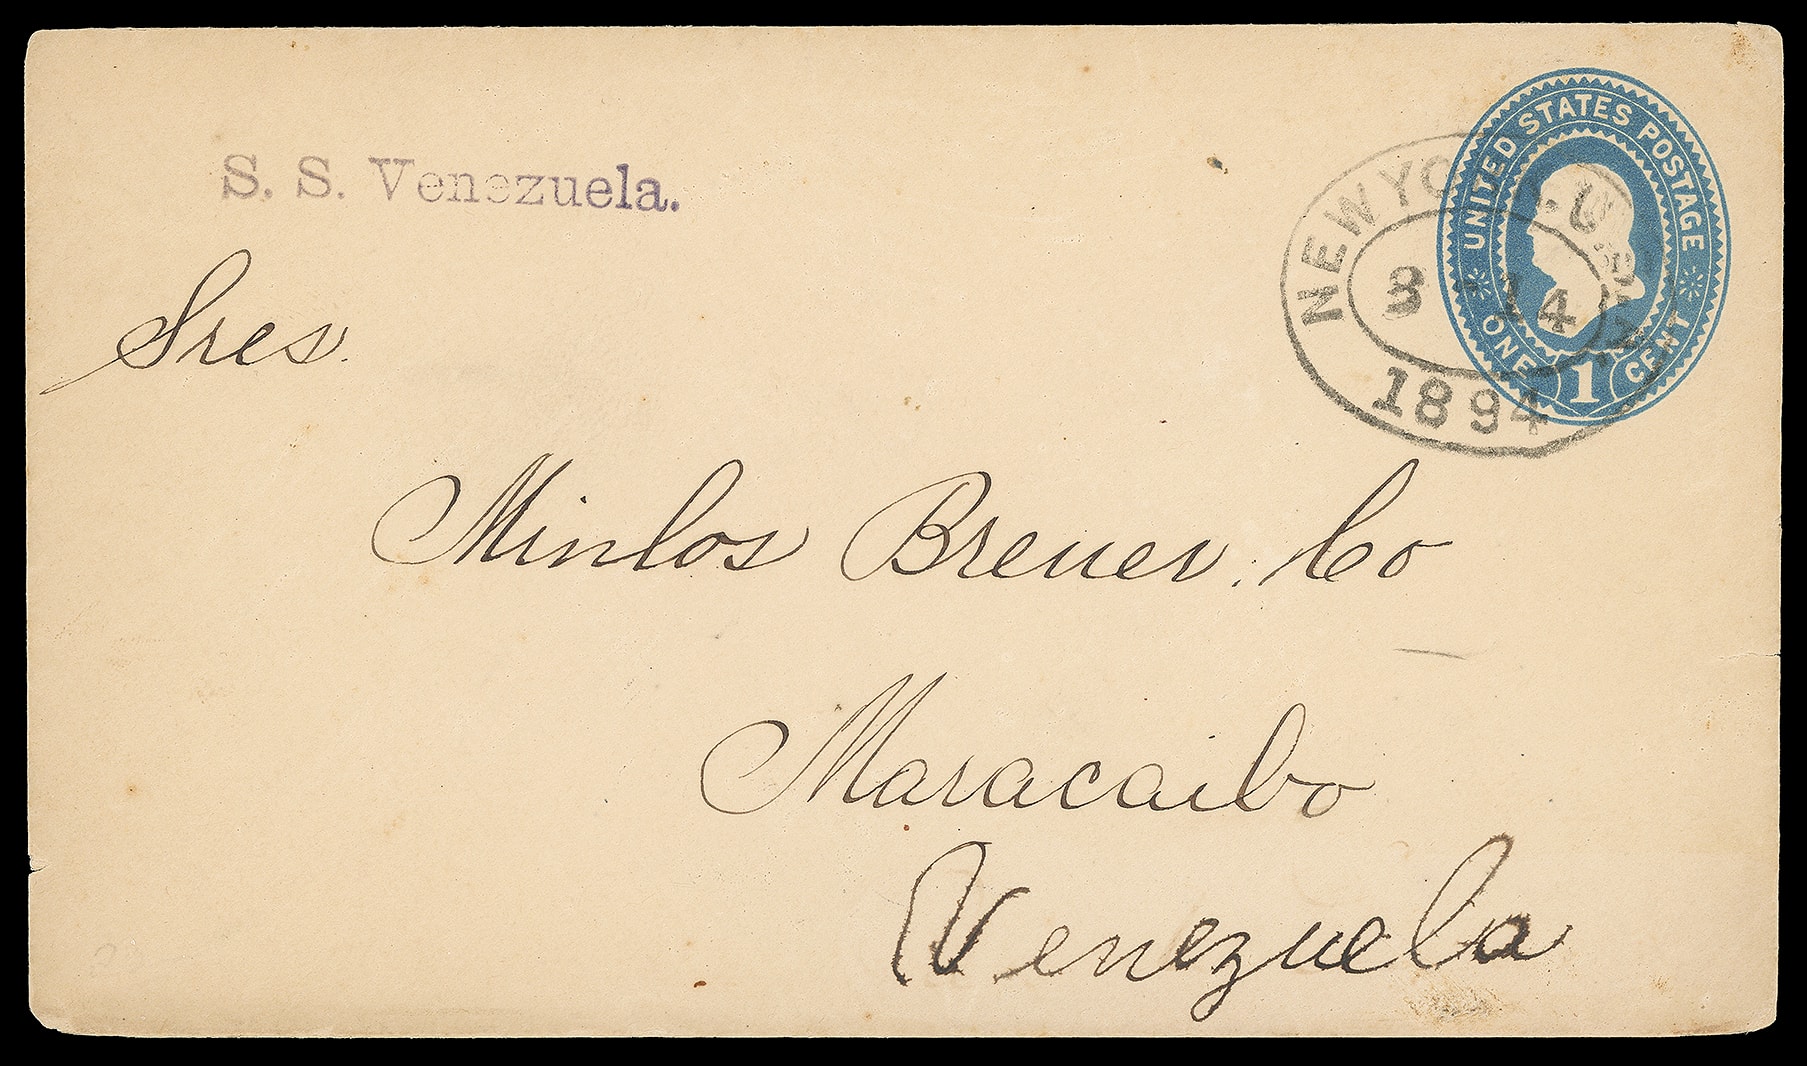 S. S. Venezuela.
UNITED STATES POSTAGE
ONE 1 CENT
NEW YORK, U.S.A.
3 - 14
1894
Sres.
Minlos Breuer, Co
Maracaibo
Venezuela